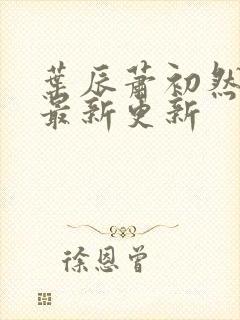 葉辰蕭初然
最新更新
徐恩曾